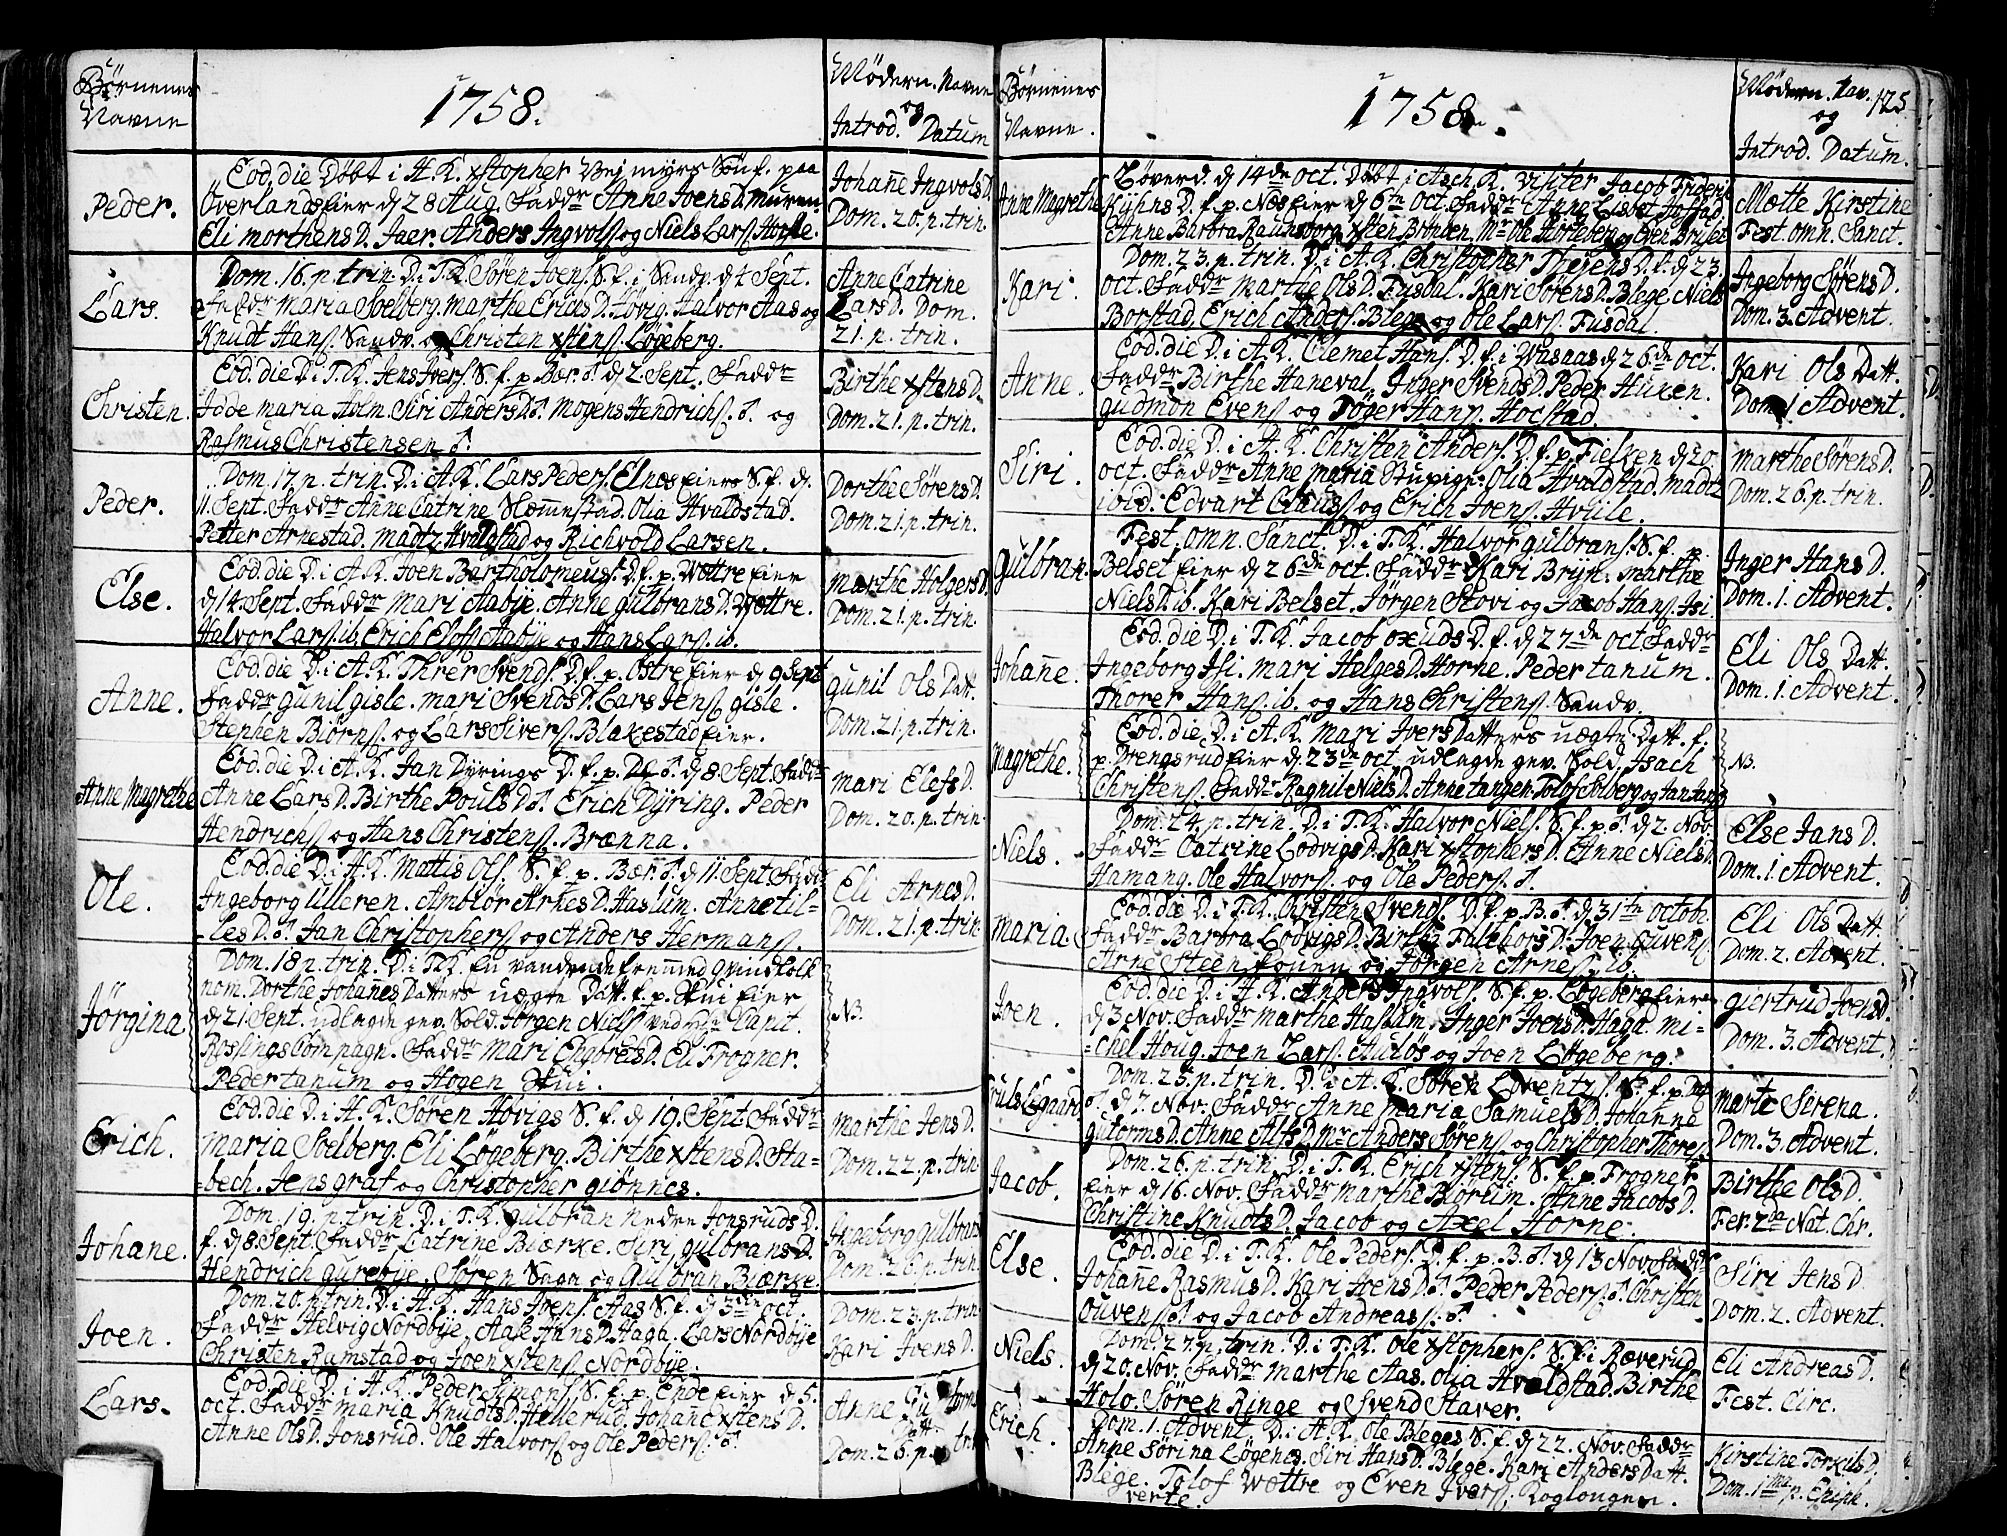 Børnenes
Navne
1758.
Mødern. Navne
og
Introd. Datum
Peder.
Eod. die Døbt i H. K. xstopher Vejmyrs Søn f. paa
Överlands Eier d 28 Aug. Faddr Anne Joens D. Muren.
Eli Morthens D. Jaer. Anders Ingvols. og Niels Lars. Horsle.
Johañe Ingvols D.
Dom. 20. p. trin.
Lars.
Dom. 16. p. trin. D. i T. K. Søren Joens. S. f. i Sandv. d 4 Sept.
Faddr Maria Soelberg. Marthe Erichs D. Høvig. Halvor Aas og
Knudt Hans. Sandv. og Christen xstens. Løgeberg.
Anne Catrine
Lars D. Dom.
21. p. trin.
Christen.
Eod. die D. i T. K. Jens Ivers. S. f. p. Bær. ♂ d 2. Sept. Faddr
Jode Maria Holm. Siri Anders D. ♂. Mogens Hendrichs. ♂. og
Rasmus Christensen ♂.
Birthe xstens D.
Dom. 21. p. trin.
Peder.
Dom. 17. p. trin. D. i A. K. Lars Peders. Elnes Eiers S. f. d.
11. Sept. Faddr Anne Catrine Slæmestad. Olia Hvaldstad.
Petter Arnestad. Madtz Hvalstad og Richvold Larsen.
Dorthe Sørens D.
Dom. 21. p. trin.
Else.
Eod. die D. i A. K. Joen Bartholomeus. D. f. p. Wøttre Eier
d 14. Sept. Faddr Mari Aabye. Anne Gulbrans D. Wøttre.
Halvor Lars. ib. Erich Elofs. Aabye og Hans Lars. ib.
Marthe Holgers D.
Dom. 21. p. trin.
Anne.
Eod. die D. i A. K. Threr Svends. D. f. p. Østre Eier d 9 Sept
Faddr Gunil Gisle. Mari Svends D. Lars Jens. Gisle.
Stephen Biørns. og Lars Sivers. Blakestad Eier.
Gunil Ols Datt.
Dom. 21. p. trin.
Anne Magrethe
Eod. die D. i A. K. Jan Dyrings D. f. p. ♂. d 8 Sept. Faddr
Anne Lars D. Birthe Pouls D. ♂. Erich Dyring. Peder
Hendrichs. og Hans Christens. Brænna.
Mari Elefs D.
Dom. 20. p. trin.
Ole.
Eod. die D. i A. K. Mattis Ols. S. f. p. Bær. ♂. d 11. Sept. Faddr
Ingeborg Ulleren. Ambiør Arnes D. Haslum. Anne Til-
-les D. ♂. Jan Christophers. og Anders Hermans.
Eli Arnes D.
Dom. 21. p. trin.
Jørgina
Dom. 18 p. trin. D. i T. K. En vandrende fremmed Qvindfolk
nom. Dorthe Johanes Datters uægte Datt. f. p. Skui Eier
d 21. Sept. udlagde gev. Sold. Jørgen Niels. ved Capit.
Roslings Compagn. Faddr Mari Engbrets D. Eli Frogner.
Peder Tanum og Hogen Skui.
NB.
Erich.
Eod. die D. i H. K. Søren Høvigs S. f. d 19. Sept. Faddr
Maria Soelberg. Eli Løgeberg. Birthe xstens D. Sta-
-bech. Jens Graf og Christopher Giønnes.
Marthe Jens D.
Dom. 22. p. trin.
Johane.
Dom. 19. p. trin. D. i T. K. Gulbran Nedre Jonsruds D.
f. d 8. Sept. Faddr Catrine Biærke. Siri Gulbrans D.
Hendrich Gurebye. Søren Sagn og Gulbran Biærke.
Ingeborg Gulbrans
Dom. 26. p. trin.
Joen.
Dom. 20. p. trin. D. i H. K. Hans Joens. Aas S. f. d 3de oct.
Faddr Helvig Nordbye. Aase Hans D. Haga. Lars Nordbye
Christen Ramstad og Joen xstens. Nordbye.
Dom. 23. p. trin.
Kari Joens D.
Lars.
Eod. die D. i H. K. Peder Symons. S. f. p. Ende Eier d 5.
oct. Faddr Maria Knudts D. Hellerud. Johañe xstens D.
Anne Ols D. Jonsrud. Ole Halvors. og Ole Peders. ♂.
Anne
Datt.
Dom. 26. p. trin
Børnenes
Navne.
1758.
Mødern. Nav. 175
og
Introd. Datum.
Anne Magrethe
Løverd. d 14de Oct. Døbt i Asch. K. Visiter Jacob Frideric
Kuhns D. f. p. Næs Eier d 6te Oct. Faddr Anne Lisbet Jossad
Anne Barbra Raunsborg. xsten Brønden. Mr Ole Horteberg og Even Briset
Mætte Kirstine
Fest. omn. Sanct.
Kari.
Dom. 23. p. trin. D. i A. K. Christopher Theyens D. f. d 23.
oct. Faddr Marthe Ols D. Fusdal. Kari Sørens D. Blege. Niels
Borstad, Erich Anders. Blege og Ole Lars. Fusdal.
Ingeborg Sørens D.
Dom. 3. Advent.
Anne.
Eod. die D. i A. K. Clemet Hans. D. f. i Vasnas d 26de oct.
Faddr Birthe Haneval. Inger Svends D. Peder Huken.
Gudmon Evens. og Røger Hans. Hocstad.
Kari Ols Datt.
Dom. 1 Advent.
Siri.
Eod. die D. i A. K. Christen Anders. D. f. p. Fielken d 20
oct. Faddr Anne Maria Stupige. Olia Hvaldstad. Madtz
ibid. Edvart Claus. og Erich Joens. Hvile.
Marthe Sørens D.
Dom. 26. p. trin.
Gulbran.
Fest. omn. Sanct D. i T. K. Halvor Gulbrans. S. f. p.
Belset Eier d 26de oct. Faddr Kari Bryn. Marthe
Niels D. ib. Kari Belset. Jørgen Stovi og Jacob Hans. Isi
Inger Hans D.
Dom. 1. Advent.
Johañe.
Eod. die D. i T. K. Jacob oxuds D. f. d 27de oct Faddr
Ingeborg Isi. Mari Helges D. Horne. Peder Tanum.
Thorer Hans. ib. og Hans Christens. Sandv.
Eli Ols Datt.
Dom. 1. Advent.
Magrethe.
Eod. die D. i A. K. Mari Ivers Datters uægte Datt. f.
p. Drengsrud Eier d 23de oct. udlagde gev. Sold. Isach
Christens. Faddr Ragnil Niels D. Anne Tangen. Tolof Solberg og Jan Jans.
NB.
Niels.
Dom. 24. p. trin. D. i T. K. Halvor Niels. S. f. p. ♂. d 2. Nov.
Faddr Catrine Lodvigs D. Kari xstophers D. Anne Niels D.
Hamang. Ole Halvors. og Ole Peders. ♂.
Else Jans D.
Dom. 1. Advent.
Maria
Eod. die D. i T. K. Christen Svends. D. f. p. B. ♂. d 31te octobr.
Faddr Barbra Lodvigs D. Birthe Talchors D. Joen Guvens.
Arne Steen og Jørgen Arnes. ib.
Eli Ols Datt.
Dom. 2. Advent.
Joen.
Eod. die D. i H. K. Anders Ingvols. S. f. p. Løgeberg Eier
d 3 Nov. Faddr Marthe Haslum. Inger Joens D. Haga. Mi-
-chel Houg. Joen Lars. Auløs og Joen Løgeberg.
Giertrud Joens D.
Dom. 3. Advent.
Truls Egaard
Dom. 25. p. trin. D. i A. K. Søren Lorentz. S. f. p.
♂. d 7. Nov. Faddr Anne Maria Samuels D. Johanne
Gutorms D. Anne Alfs D. Mr Anders Sørens. og Christopher Thores.
Marte Sirena.
Dom. 3. Advent.
Jacob.
Dom. 26. p. trin. D. i T. K. Erich xstens. S. f. p. Frogner
Eier d 16. Nov. Faddr Marthe Biorum. Anne Jacobs D.
Christine Knudts D. Jacob og Axel Horne.
Birthe Ols D.
Fer. 2da Nat. Chr.
Else.
Eod. die D. i T. K. Ole Peders. D. f. p. B. ♂. d 13 Nov. Faddr
Johañe Rasmus D. Kari Joens D. ♂. Peder Peders. ♂. Christen
Ouvens. ♂. og Jacob Andreas. ♂.
Siri Jens D.
Dom. 2. Advent.
Niels.
Dom. 27. p. trin. D. i T. K. Ole xstophers. S. f. i Ræverud
d 20. Nov. Faddr Marthe Aas. Olia Hvaldstad. Birthe
Holo. Søren Ringe og Svend Staver.
Eli Andreas D.
Fest. Circ.
Erich.
Dom. 1. Advent D. i A. K. Ole Bleges S. f. d 22. Nov. Faddr
Anne Sørina Løgenes. Siri Hans D. Blege. Kari Anders Datt.
Blege. Tolof Wættre og Even Ivers. Roglongen.
verte.
Kirstine Torkils D.
Dom. 1ma p. Epiph.